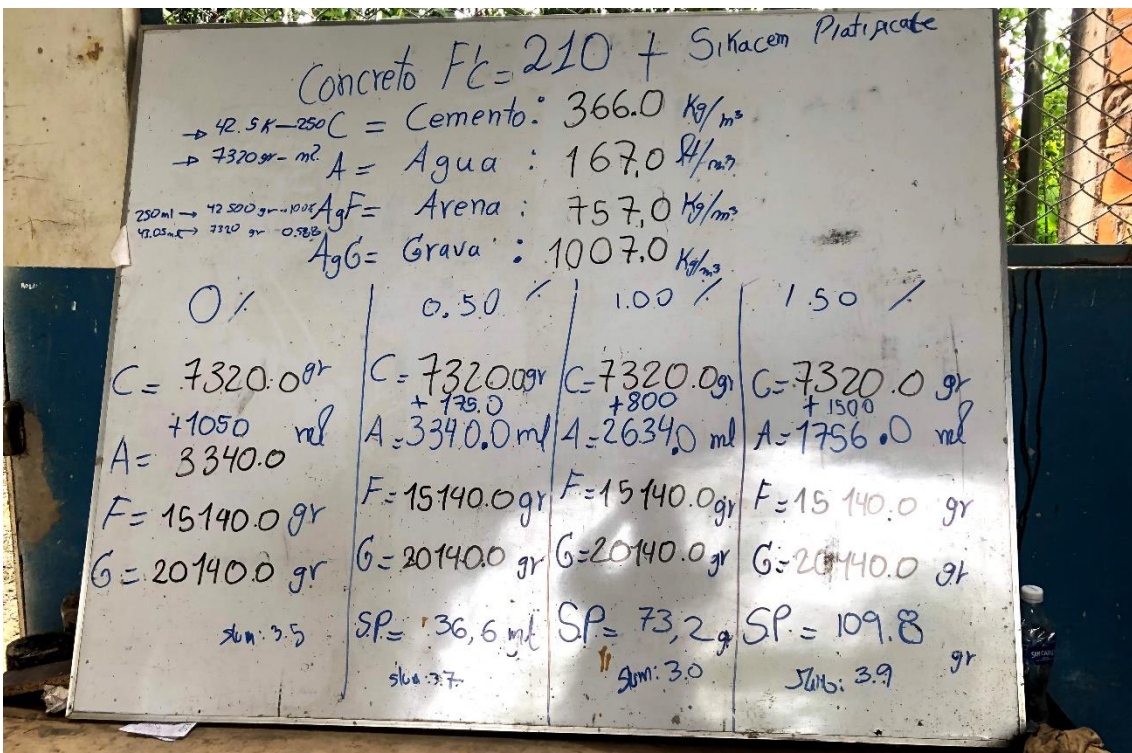 Concreto F'c = 210 + Sikacem Platificate
→ 42.5K - 250 C = Cemento: 366.0 Kg/m³
→ 7320 gr - m?. A = Agua : 167,0 lt/m³
250ml → 42500 gr - 100% AgF = Arena : 757,0 Kg/m³
43.05ml → 7320 gr - 0.588 AgG = Grava : 1007.0 Kg/m³
0%
C = 7320.0 gr
+1050 ml
A = 3340.0
F = 15140.0 gr
G = 20140.0 gr
slum: 3.5
0.50 %
C = 7320.0 gr
+ 175.0
A = 3340.0 ml
F = 15140.0 gr
G = 20140.0 gr
S.P. = 36,6 ml
slum: 3.7
1.00 %
C = 7320.0 gr
+800
A = 2634.0 ml
F = 15140.0 gr
G = 20140.0 gr
S.P. = 73,2 g
slum: 3.0
1.50 %
C = 7320.0 gr
+ 1500
A = 1756.0 ml
F = 15140.0 gr
G = 20140.0 gr
S.P. = 109.8 gr
slum: 3.9